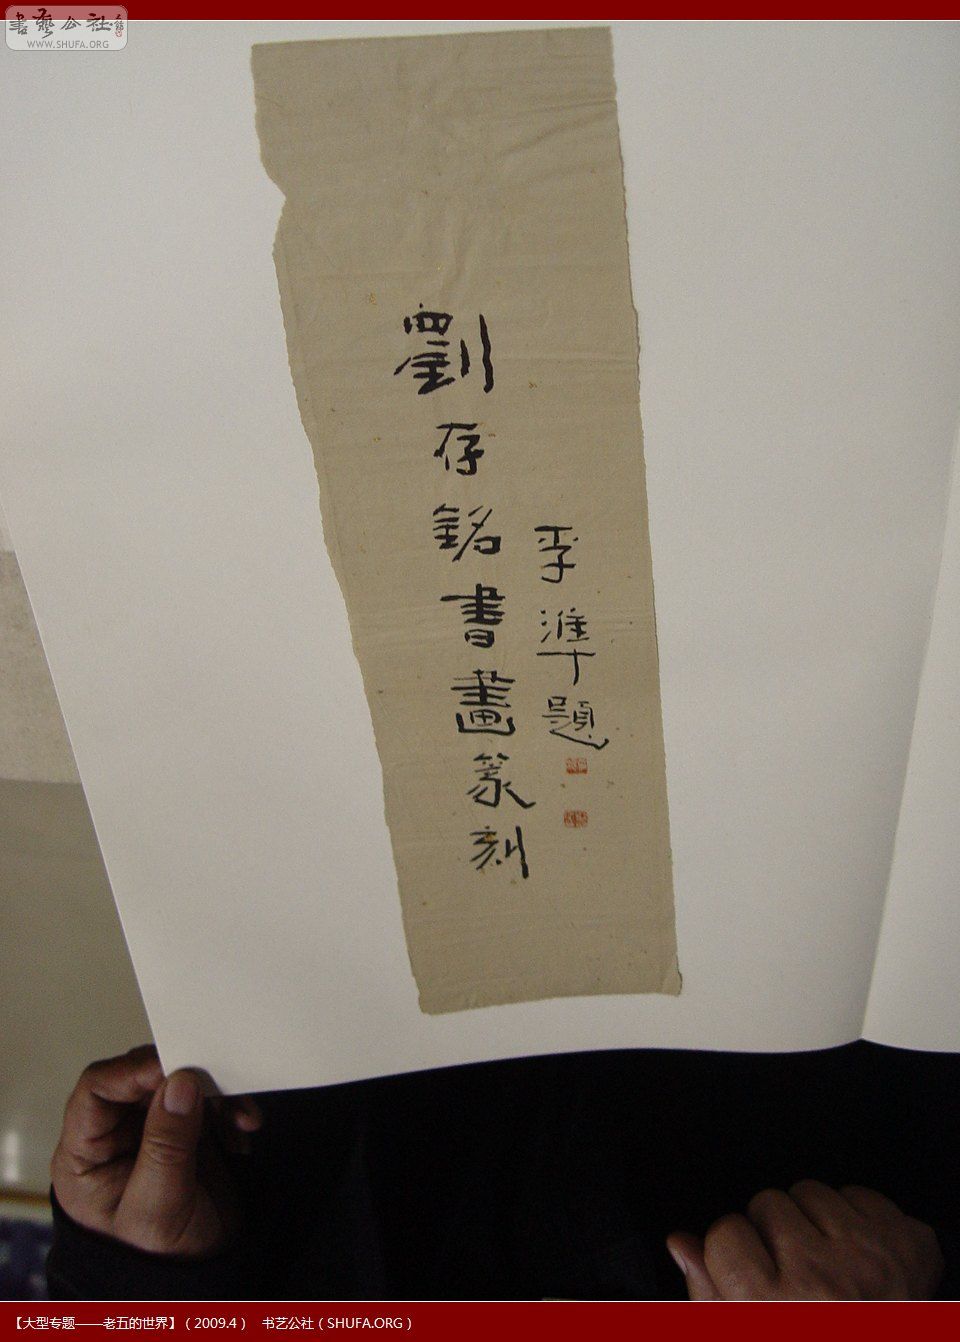 書藝公社
WWW.SHUFA.ORG
劉存銘書畫篆刻
李準題
【大型专题——老五的世界】（2009.4） 书艺公社（SHUFA.ORG）